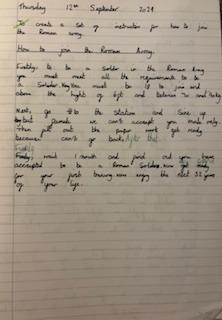 Thursday 12th September 2024
To create a set of instruction for how to join
the Roman army.
How to join the Roman Army.
Firstly, to be a Soldier in the Roman Army
you must meet all the requirements to be
a Soldier. You must be 18 to join and
above the hight of 6ft and
Next, go to the Station and Sine up
but female we can't accept you male only.
Then fill out the paper work get ready
because can't go back. After that
wait 1 month and you have
accepted to be a Roman Soldier. now get ready
for your first training. now enjoy the next 32 years
of your life.